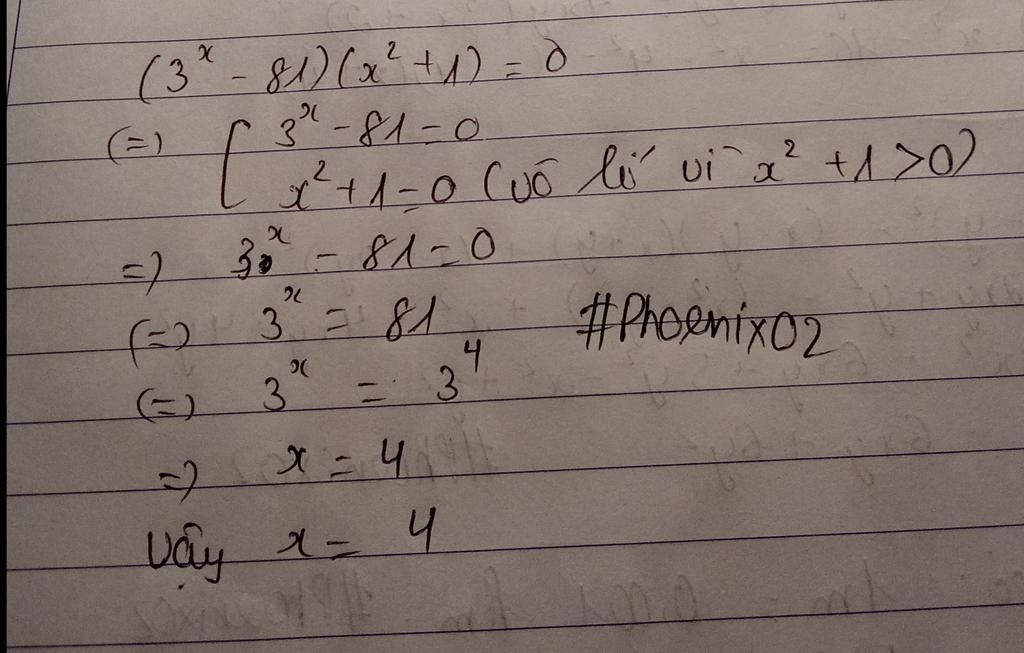 (3^x - 81)(x² + 1) = 0
(=) [ 3^x - 81 = 0
x² + 1 = 0 (vô lí vì x² + 1 > 0)
=) 3^x - 81 = 0
(=) 3^x = 81 #Phoenix02
(=) 3^x = 3^4
=) x = 4
Vậy x = 4